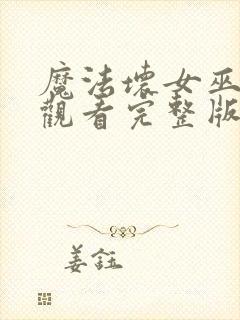 魔法壞女巫
觀看完整版
姜鈺